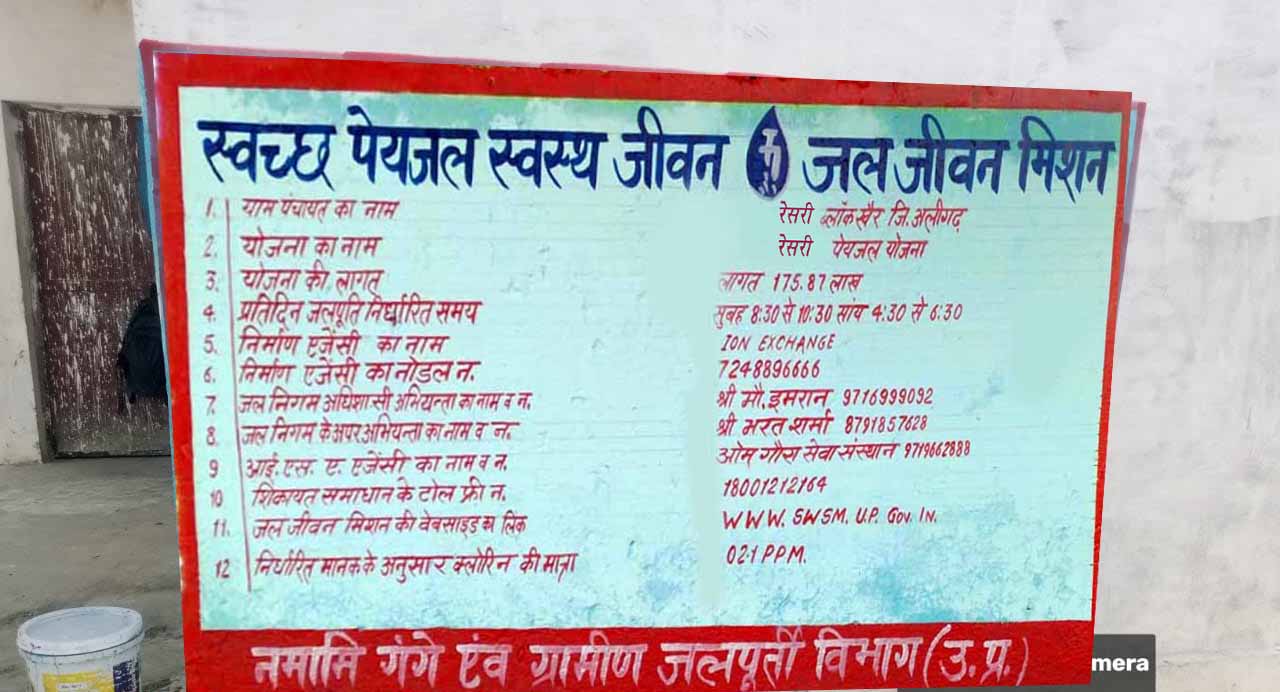 स्वच्छ पेयजल स्वस्थ जीवन जल जीवन मिशन
1. ग्राम पंचायत का नाम रेसरी ब्लॉक खैर जि. अलीगढ़
2. योजना का नाम रेसरी पेयजल योजना
3. योजना की लागत लागत 175.87 लाख
4. प्रतिदिन जलपूर्ति निर्धारित समय सुबह 8:30 से 10:30 सांय 4:30 से 6:30
5. निर्माण एजेंसी का नाम ION EXCHANGE
6. निर्माण एजेंसी का नोडल न. 7248896666
7. जल निगम अधिशासी अभियन्ता का नाम व न. श्री मौ. इमरान 9716999092
8. जल निगम के अपर अभियन्ता का नाम व न. श्री भरत शर्मा 8791857628
9 आई. एस. ए. एजेंसी का नाम व न. ओम गौरा सेवा संस्थान 9719662888
10 शिकायत समाधान के टोल फ्री न. 18001212164
11. जल जीवन मिशन की वेबसाइड का लिंक WWW. SWSM. U.P. Gov. In.
12 निर्धारित मानक के अनुसार क्लोरिन की मात्रा 02.1 PPM.
नमामि गंगे एंव ग्रामीण जलपूर्ती विभाग (उ.प्र.)
mera